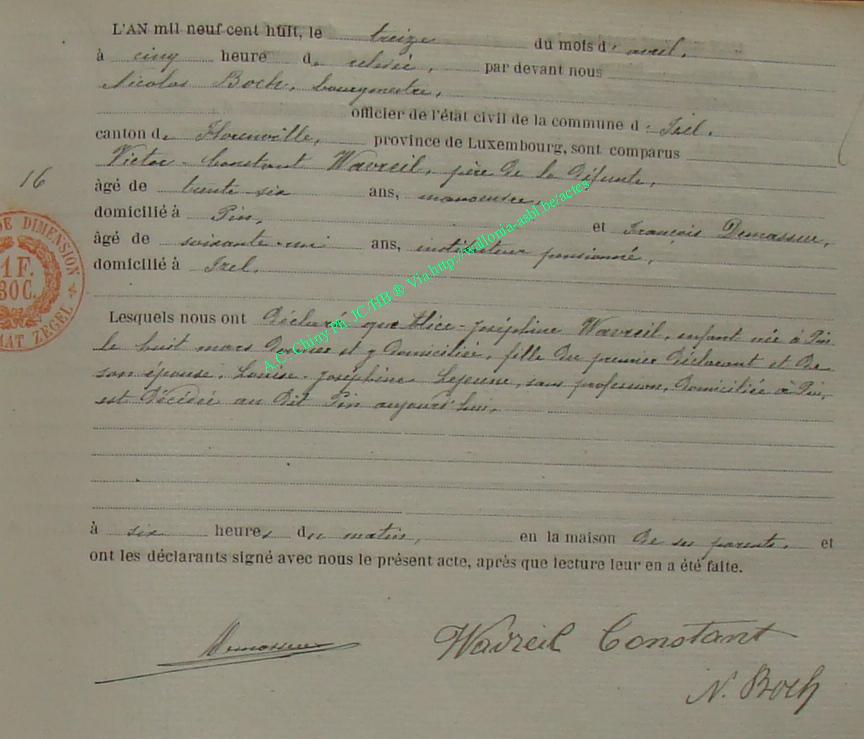 L'AN mil neuf cent huit, le treize du mois d'avril,
à cinq heure de relevé, par devant nous
Nicolas Boch, bourgmestre,
officier de l'état civil de la commune d'Izel,
canton de Florenville, province de Luxembourg, sont comparus
Victor-Constant Wavreil, père de la défunte,
16
âgé de trente six ans, manoeuvre,
domicilié à Pin, et François Demasseur,
âgé de soixante-un ans, instituteur pensionné,
domicilié à Izel.
DE DIMENSION
1 F.
30C.
MAT ZEGEL
Lesquels nous ont déclaré que Alice-Joséphine Wavreil, enfant née à Pin
le huit mars dernier et y domiciliée, fille du premier déclarant et de
son épouse, Louise-Joséphine Lejeune, sans profession, domiciliée à Pin,
est décédée au dit Pin aujourd'hui,
A.C. Chiny Ph JC/HB ® Via http://wallonia-asbl.be/actes
à six heures du matin, en la maison de ses parents, et
ont les déclarants signé avec nous le présent acte, après que lecture leur en a été faite.
Demasseur
Wavreil Constant
N. Boch